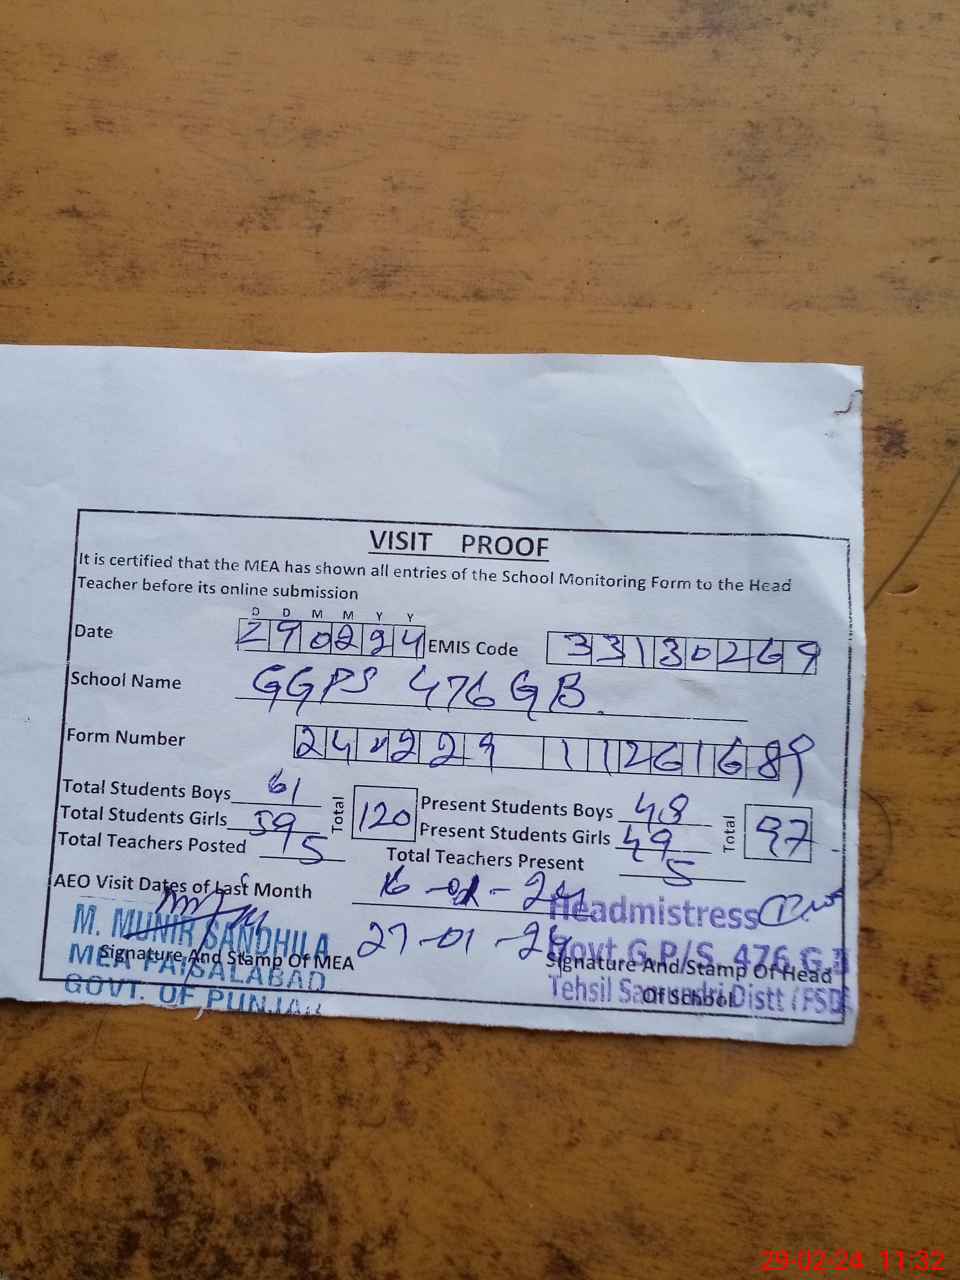 VISIT PROOF
It is certified that the MEA has shown all entries of the School Monitoring Form to the Head
Teacher before its online submission
D D M M Y Y
Date 290224 EMIS Code 33130269
School Name GGPS 476 GB.
Form Number
Total Students Boys 61 Total 120 Present Students Boys 48 Total 97
Total Students Girls 59 Present Students Girls 49
Total Teachers Posted 5 Total Teachers Present 5
AEO Visit Dates of Last Month 16-01-24
27-01-24
M. MUNIR SANDHILA
MEA FAISALABAD
GOVT. OF PUNJAB
Signature And Stamp Of MEA
Headmistress
Govt G.P/S. 476 G.B
Tehsil Samundri Distt (FSD)
Signature And Stamp Of Head
Of School
29-02-24 11:32